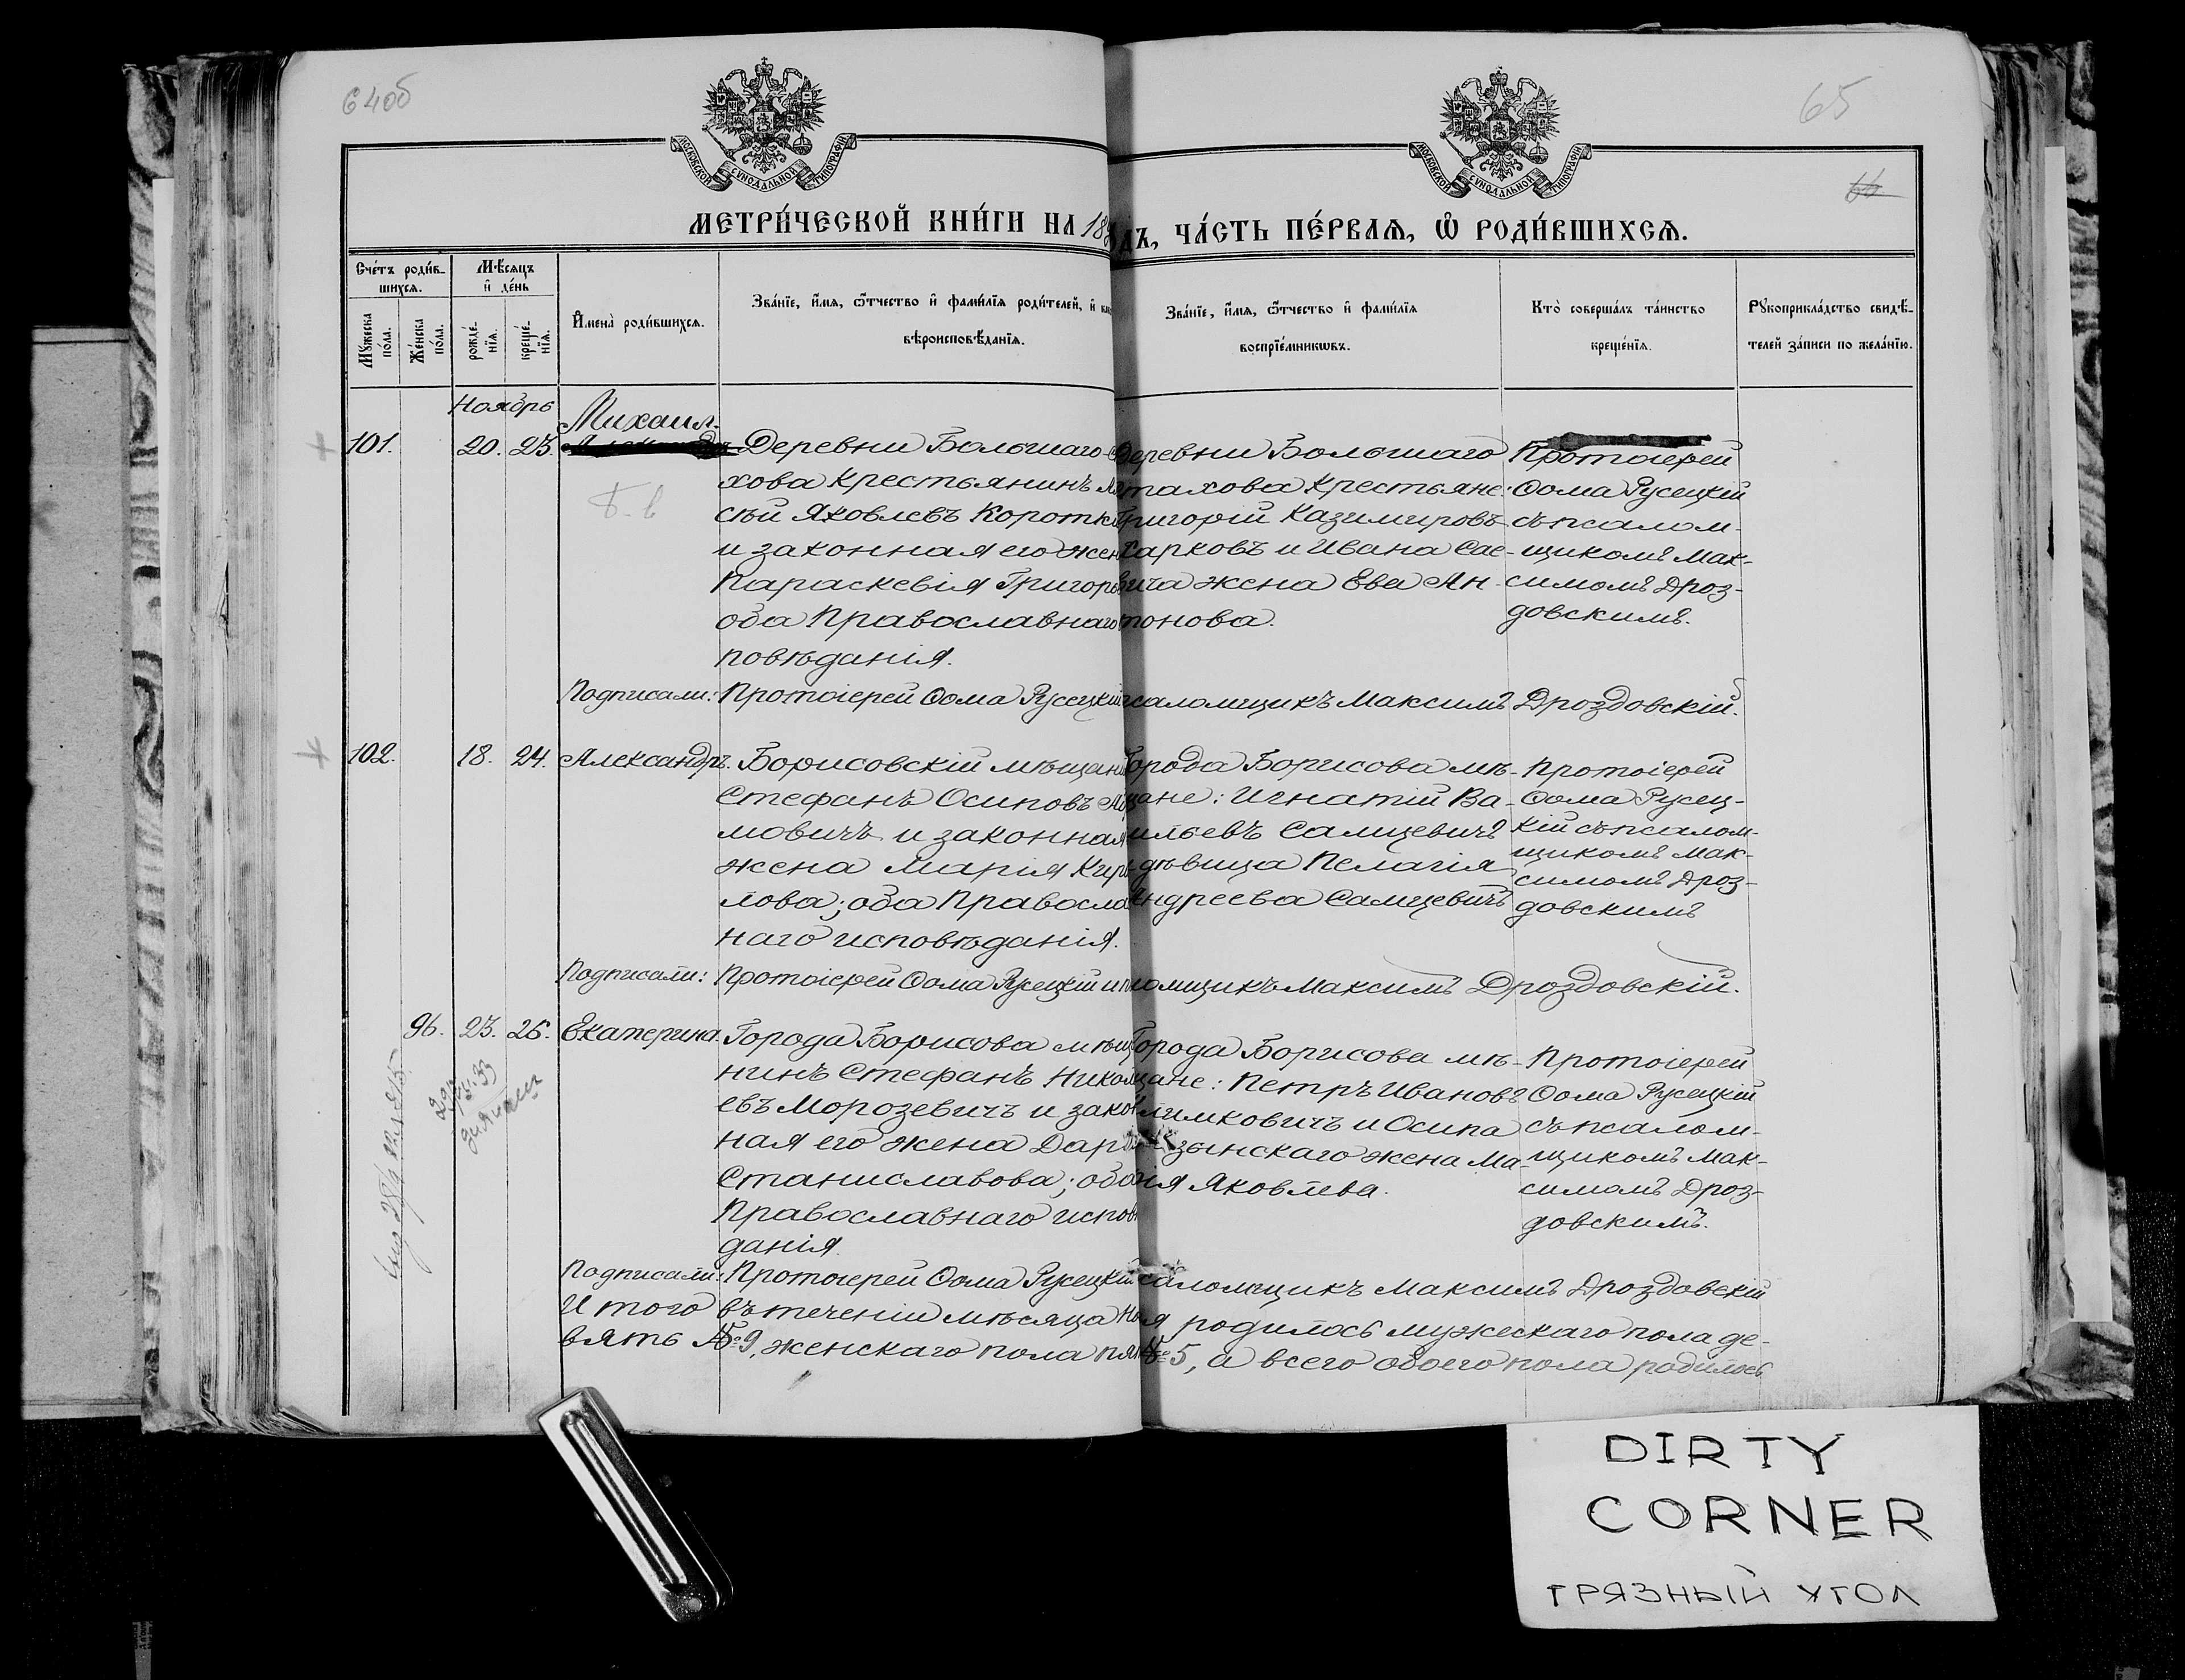 64об
65
66
МОСКОВСКОЙ СѴНОДАЛЬНОЙ ТИПОГРАФІИ
МОСКОВСКОЙ СѴНОДАЛЬНОЙ ТИПОГРАФІИ
МЕТРИ́ЧЕСКОЙ КНИ́ГИ НА 18
ДЪ, ЧА́СТЬ ПЕ́РВАѦ, Ѡ҆ РОДИ́ВШИХСѦ.
Сче́тъ роди́в-
шихсѧ.
Мꙋ́жеска по́ла.
Же́нска по́ла.
Мѣ́сѧцъ
и҆ де́нь
рожде́-
нїѧ.
креще́-
нїѧ.
И҆мена̀ роди́вшихсѧ.
Зва́нїе, и҆́мѧ, ѻ҆́тчество и҆ фами́лїѧ роди́телей, и҆
вѣроисповѣ́данїѧ.
Зва́нїе, и҆́мѧ, ѻ҆́тчество и҆ фами́лїѧ
воспрїе́мникѡвъ.
Кто̀ соверша́лъ та́инство
креще́нїѧ.
Рꙋкоприкла́дство свидѣ́-
телей за́писи по жела́нїю.
Ноябрь
Михаил.
101. 20. 23. Деревни Большаго
хова крестьянинъ
сѣй Яковлевъ Коротк
и законная его жен
Параскевія Григорь
оба Православнаго
повѣданія.
Деревни Большаго
тахова крестьяне:
Григорій Казимировъ
Харковъ и Ивана Сае-
вича жена Ева Ан-
тонова.
Протоіерей
Ѳома Русецкій
съ псалом-
щикомъ Мак-
симомъ Дроз-
довскимъ.
Подписали: Протоіерей Ѳома Русецкій саломщикъ Максимъ Дроздовскій.
102. 18. 24. Александръ. Борисовскій мѣщан
Стефанъ Осиповъ
мовичъ и законная
жена Марія Кири-
лова; оба Правосла
наго исповѣданія.
Города Борисова мѣ-
щане: Игнатій Ва-
ильевъ Самцевичъ
дѣвица Пелагія
Андреева Самцевичъ
Протоіерей
Ѳома Русец-
кій съ псалом-
щикомъ Мак-
симомъ Дроз-
довскимъ
Подписали: Протоіерей Ѳома Русецкій и п ломщикъ Максимъ Дроздовскій.
96. 23. 26. Екатерина. Города Борисова мѣщ
нинъ Стефанъ Никол
евъ Морозевичъ и закон
ная его жена Дар
Станиславова; оба
Православнаго испов
данія.
Города Борисова мѣ-
щане: Петръ Ивановъ
лимковичъ и Осипа
зынскаго жена Ма-
рія Яковлева.
Протоіерей
Ѳома Русецкій
съ псалом-
щикомъ Мак-
симомъ Дроз-
довскимъ.
Подписали: Протоіерей Ѳома Русецкій саломщикъ Максимъ Дроздовскій
И того въ теченіи мѣсяца Но я родилось мужескаго пола де-
вять № 9, женскаго пола пят № 5, а всего обоего пола родилось
DIRTY
CORNER
ГРЯЗНЫЙ УГОЛ